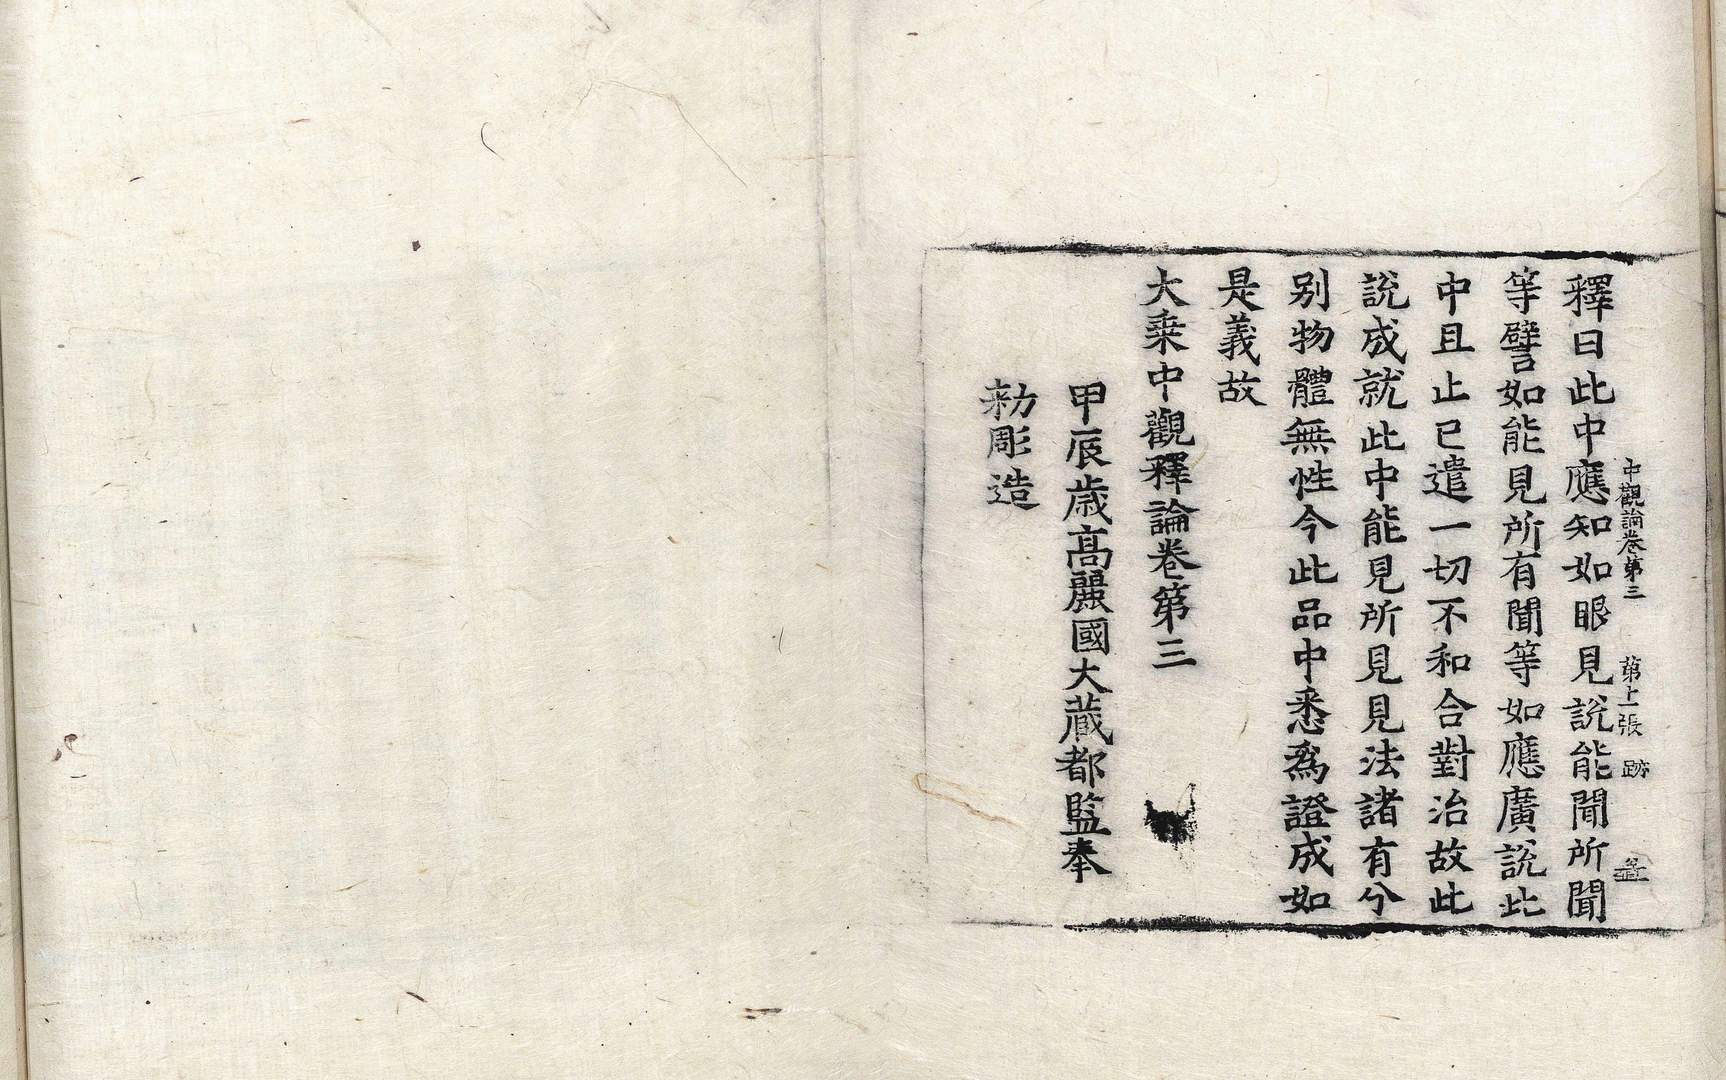 中觀論卷第三 第十張 跡
釋曰此中應知如眼見說能聞所聞
等譬如能見所有聞等如應廣說此
中且止已遣一切不和合對治故此
說成就此中能見所見見法諸有分
别物體無性今此品中悉爲證成如
是義故
大乗中觀釋論卷第三
甲辰歲高麗國大藏都監奉
勑彫造